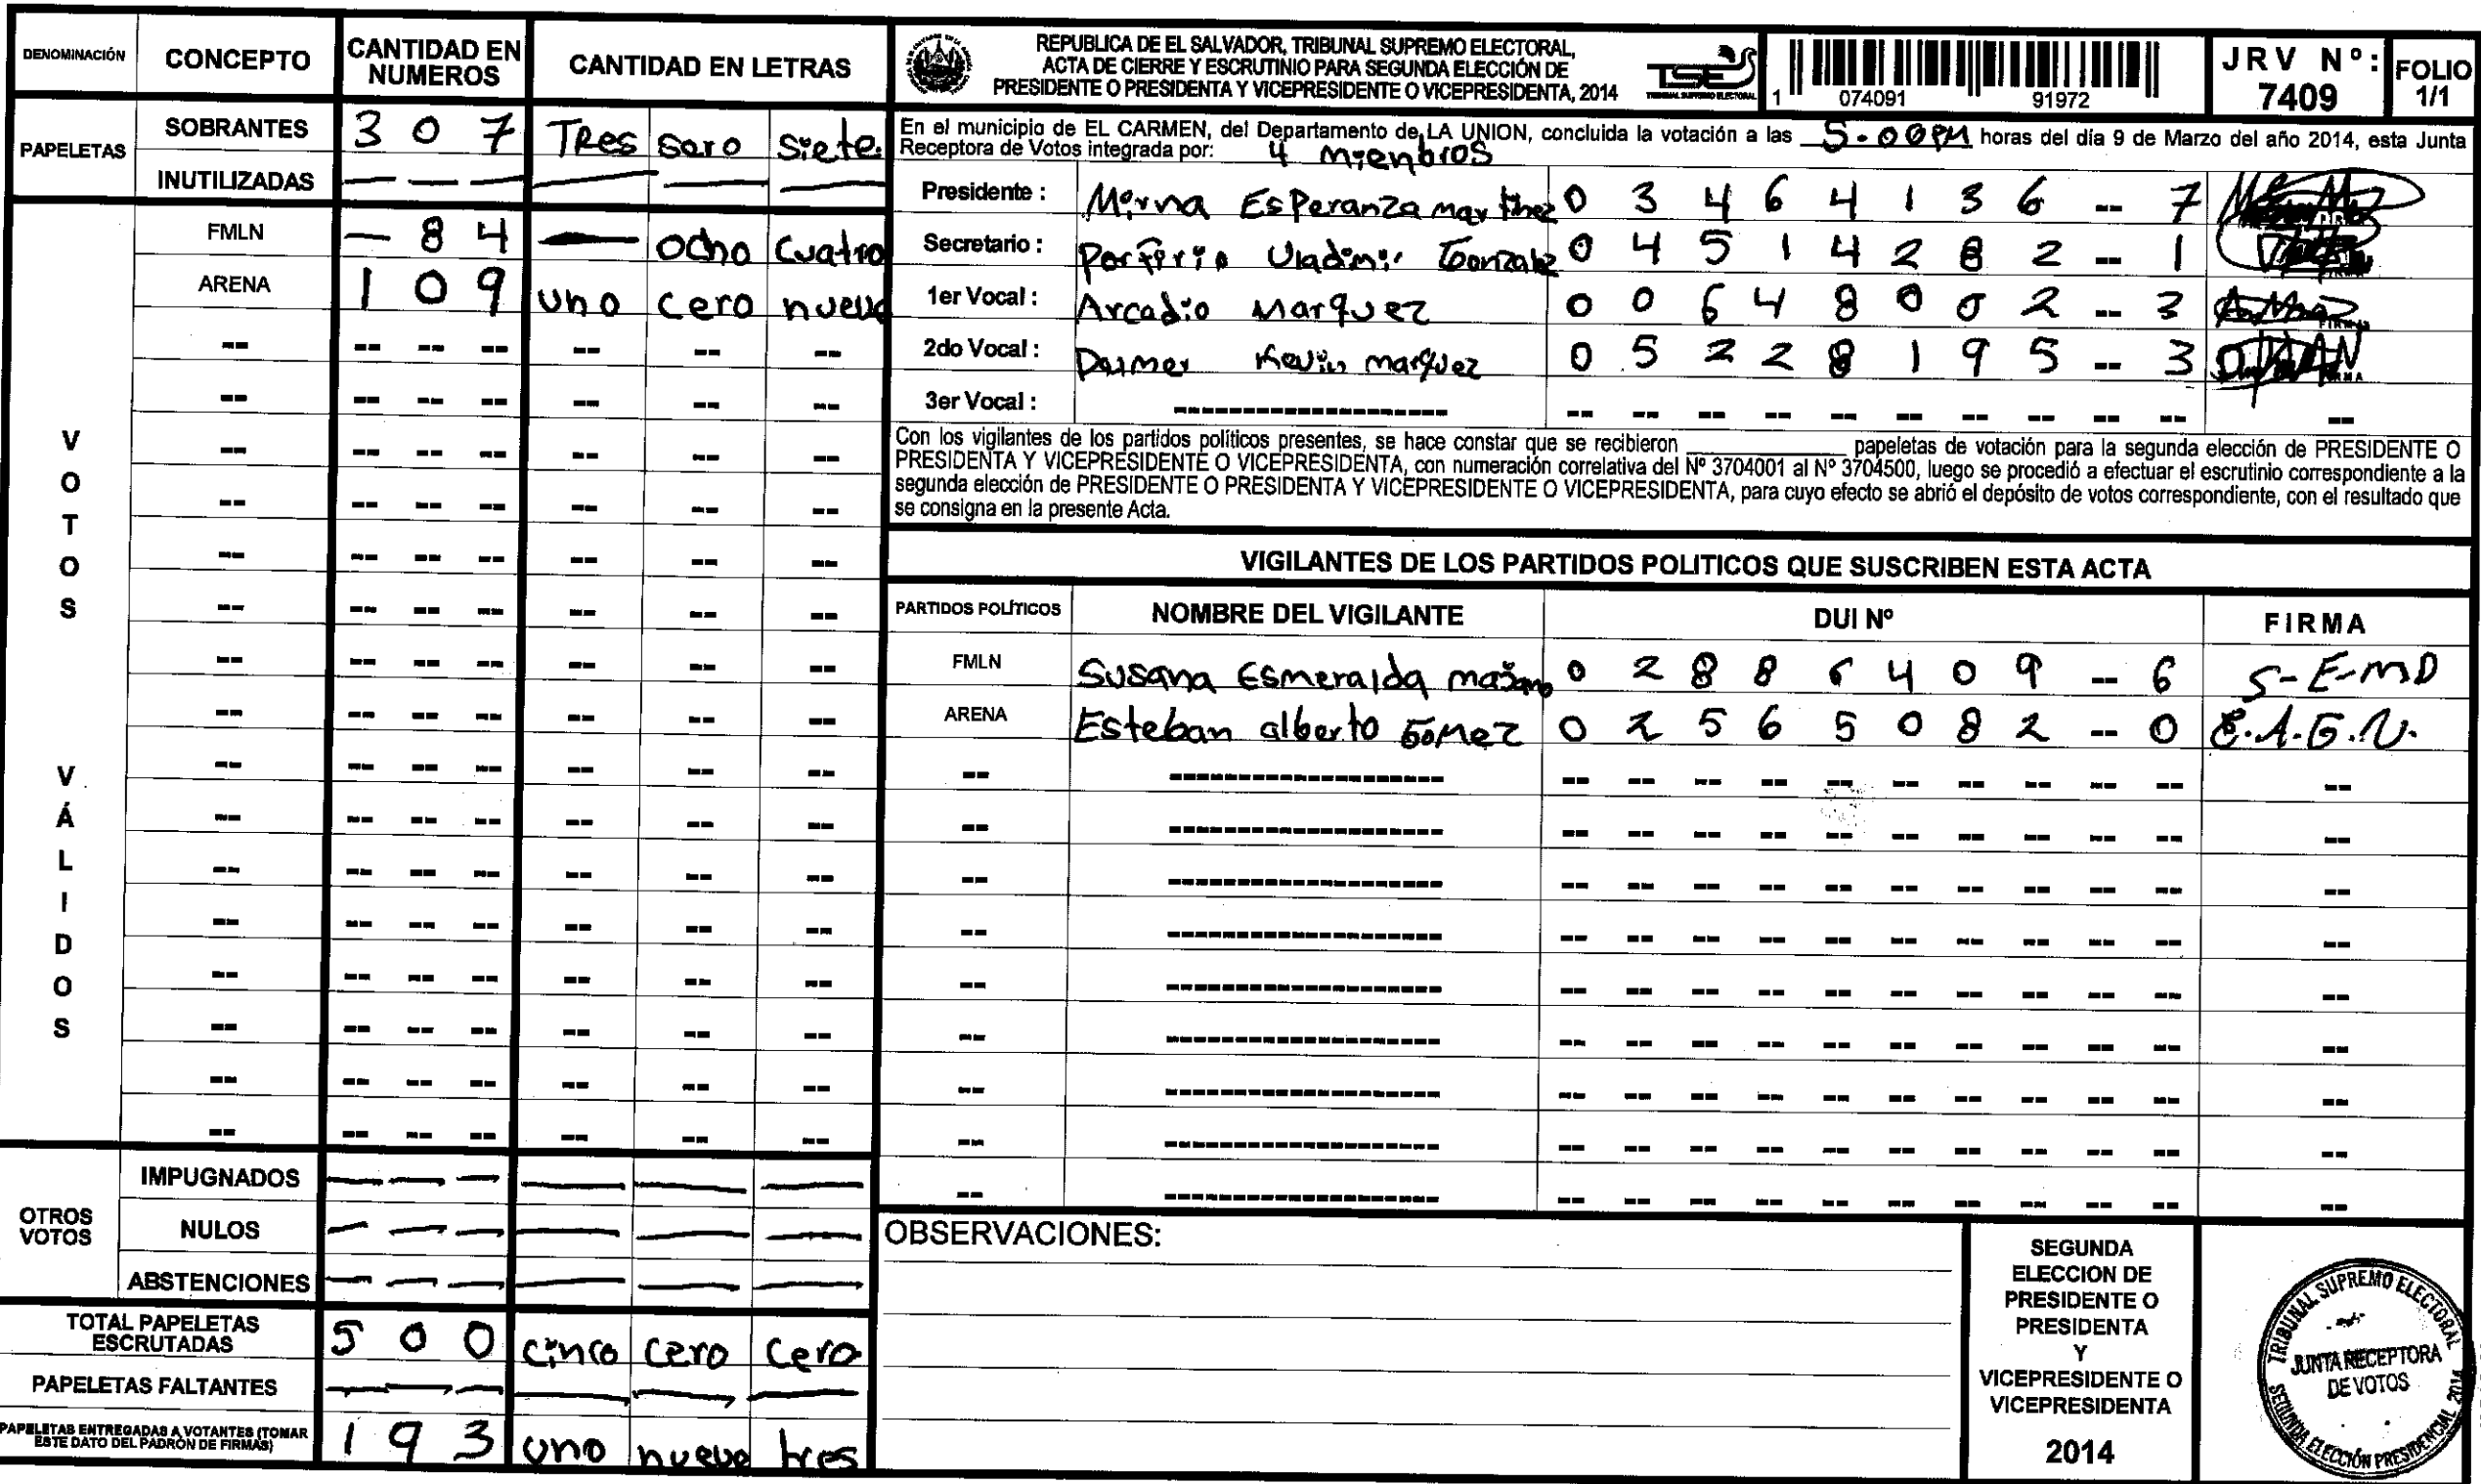 DENOMINACIÓN CONCEPTO CANTIDAD EN NUMEROS CANTIDAD EN LETRAS
PAPELETAS
SOBRANTES 3 0 7 TRes sero siete
INUTILIZADAS
VOTOS VÁLIDOS
FMLN — 8 4 — ocho cuatro
ARENA 1 0 9 uno cero nueve
OTROS VOTOS
IMPUGNADOS
NULOS
ABSTENCIONES
TOTAL PAPELETAS ESCRUTADAS 5 0 0 cinco cero cero
PAPELETAS FALTANTES
PAPELETAS ENTREGADAS A VOTANTES (TOMAR ESTE DATO DEL PADRÓN DE FIRMAS) 1 9 3 uno nueve tres
REPUBLICA DE EL SALVADOR, TRIBUNAL SUPREMO ELECTORAL,
ACTA DE CIERRE Y ESCRUTINIO PARA SEGUNDA ELECCIÓN DE
PRESIDENTE O PRESIDENTA Y VICEPRESIDENTE O VICEPRESIDENTA, 2014
TSE
TRIBUNAL SUPREMO ELECTORAL
1 074091 91972
JRV Nº: 7409
FOLIO 1/1
En el municipio de EL CARMEN, del Departamento de LA UNION, concluida la votación a las 5-00PM horas del día 9 de Marzo del año 2014, esta Junta
Receptora de Votos integrada por: 4 mienbros
Presidente : Mirna Esperanza martinez 0 3 4 6 4 1 3 6 -- 7
Secretario : Porfirio Uladimir Gonzalez 0 4 5 1 4 2 8 2 -- 1
1er Vocal : Arcadio Marquez 0 0 6 4 8 0 0 2 -- 3
2do Vocal : Kevin marquez 0 5 2 2 8 1 9 5 -- 3
3er Vocal :
Con los vigilantes de los partidos políticos presentes, se hace constar que se recibieron papeletas de votación para la segunda elección de PRESIDENTE O
PRESIDENTA Y VICEPRESIDENTE O VICEPRESIDENTA, con numeración correlativa del Nº 3704001 al Nº 3704500, luego se procedió a efectuar el escrutinio correspondiente a la
segunda elección de PRESIDENTE O PRESIDENTA Y VICEPRESIDENTE O VICEPRESIDENTA, para cuyo efecto se abrió el depósito de votos correspondiente, con el resultado que
se consigna en la presente Acta.
VIGILANTES DE LOS PARTIDOS POLITICOS QUE SUSCRIBEN ESTA ACTA
PARTIDOS POLÍTICOS NOMBRE DEL VIGILANTE DUI Nº FIRMA
FMLN Susana Esmeralda 0 2 8 8 6 4 0 9 -- 6 S-E-MD
ARENA Esteban alberto Gomez 0 2 5 6 5 0 8 2 -- 0 E.A.G.V.
OBSERVACIONES:
SEGUNDA
ELECCION DE
PRESIDENTE O
PRESIDENTA
Y
VICEPRESIDENTE O
VICEPRESIDENTA
2014
TRIBUNAL SUPREMO ELECTORAL
JUNTA RECEPTORA
DE VOTOS
SEGUNDA ELECCIÓN PRESIDENCIAL 2014